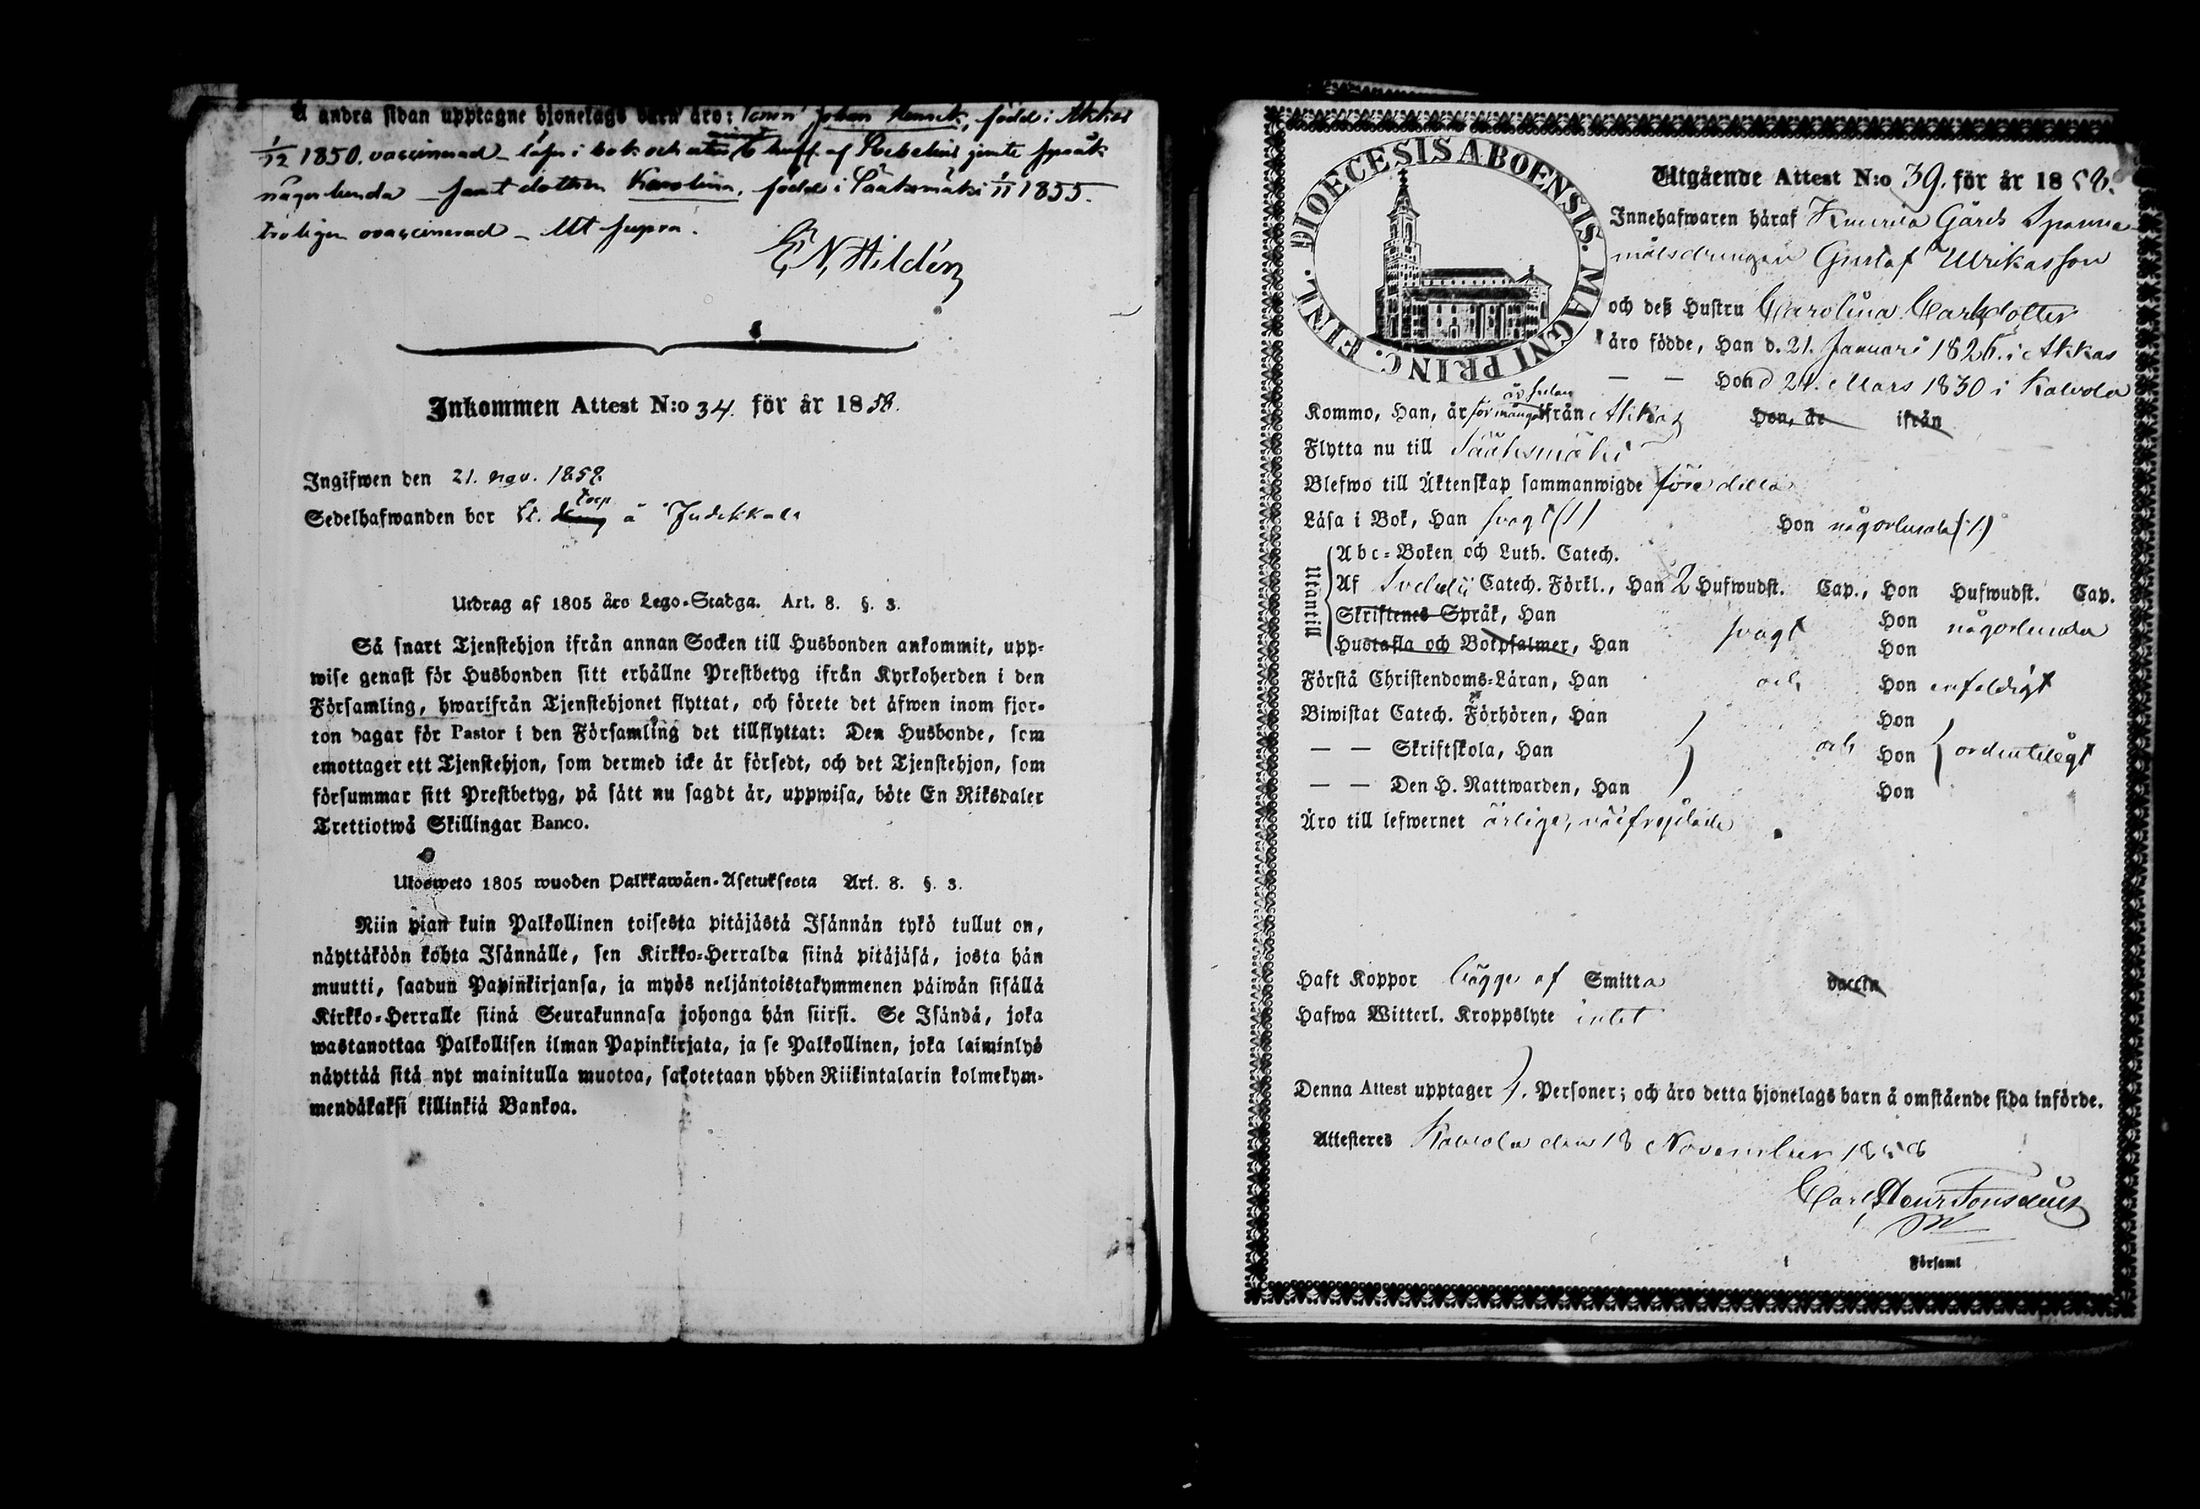 Å andra sidan upptagne hjonelags barn äro: sonen Johan Henrik, född i Akkas
1/12 1850. vaccinerad – läser i bok och af Rebelius jemte språk
någorlunda – samt dottren Karolina, född i Sääksmäki 1/11 1855.
troligen ovaccinerad – Ut supra.
E N Hildén
Inkommen Attest N:o 34. för år 1858.
Ingifwen den 21. nov. 1858.
Sedelhafwanden bor torp å Judikkala
Utdrag af 1805 års Lego-Stadga. Art. 8. §. 3.
Så snart Tjenstehjon ifrån annan Socken till Husbonden ankommit, upp-
wise genast för Husbonden sitt erhållne Prestbetyg ifrån Kyrkoherden i den
Församling, hwarifrån Tjenstehjonet flyttat, och förete det äfwen inom fjor-
ton dagar för Pastor i den Församling det tillflyttat: Den Husbonde, som
emottager ett Tjenstehjon, som dermed icke är försedt, och det Tjenstehjon, som
försummar sitt Prestbetyg, på sätt nu sagdt är, uppwisa, böte En Riksdaler
Trettiotwå Skillingar Banco.
Ulosweto 1805 wuoden Palkkawäen-Asetuksesta Art. 8. §. 3.
Niin pian kuin Palkollinen toisesta pitäjästä Isännän tykö tullut on,
näyttäköön kohta Isännälle, sen Kirkko-Herralda siinä pitäjäsä, josta hän
muutti, saadun Papinkirjansa, ja myös neljäntoistakymmenen päiwän sisällä
Kirkko-Herralle siinä Seurakunnasa johonga hän siirsi. Se Isändä, joka
wastanottaa Palkollisen ilman Papinkirjata, ja se Palkollinen, joka laiminlyö
näyttää sitä nyt mainitulla muotoa, sakotetaan yhden Riikintalarin kolmekym-
mendäkaksi killinkiä Bankoa.
DIOECESIS ABOENSIS. MAGNI PRINC. FINL.
Utgående Attest N:o 39. för år 1858.
Innehafwaren häraf Gårds Spanne
målsdrängen Gustaf Ulrikasson
och deß Hustru Carolina Carlsdotter
äro födde, Han d. 21. Januari 1826. i Akkas
— — Hon d 21. Mars 1830 i Kalvola
Kommo, Han, är för många år sedan ifrån Akkas Hon, är ifrån
Flytta nu till Sääksmäki
Blefwo till Äktenskap sammanwigde före detta
Läsa i Bok, Han svagt (1) Hon någorlunda (1)
Utantill
Abc-Boken och Luth. Catech.
Af Svebelii Catech. Förkl., Han 2 Hufwudst. Cap., Hon Hufwudst. Cap.
Skriftenes Språk, Han Hon
Hustafla och Botpsalmer, Han svagt Hon någorlunda
Förstå Christendoms-Läran, Han och Hon enfaldigt
Biwistat Catech. Förhören, Han Hon
— — Skriftskola, Han och Hon ordenteligt
— — Den H. Nattwarden, Han Hon
Äro till lefwernet ärlige, välfrejdade
Haft Koppor bägge af Smitta vaccin
Hafwa Witterl. Kroppslyte intet
Denna Attest upptager Personer; och äro detta hjonelags barn å omstående sida införde.
Attesteras Kalvola den 18 November 1858
Carl Henr Fonselius
i Församl